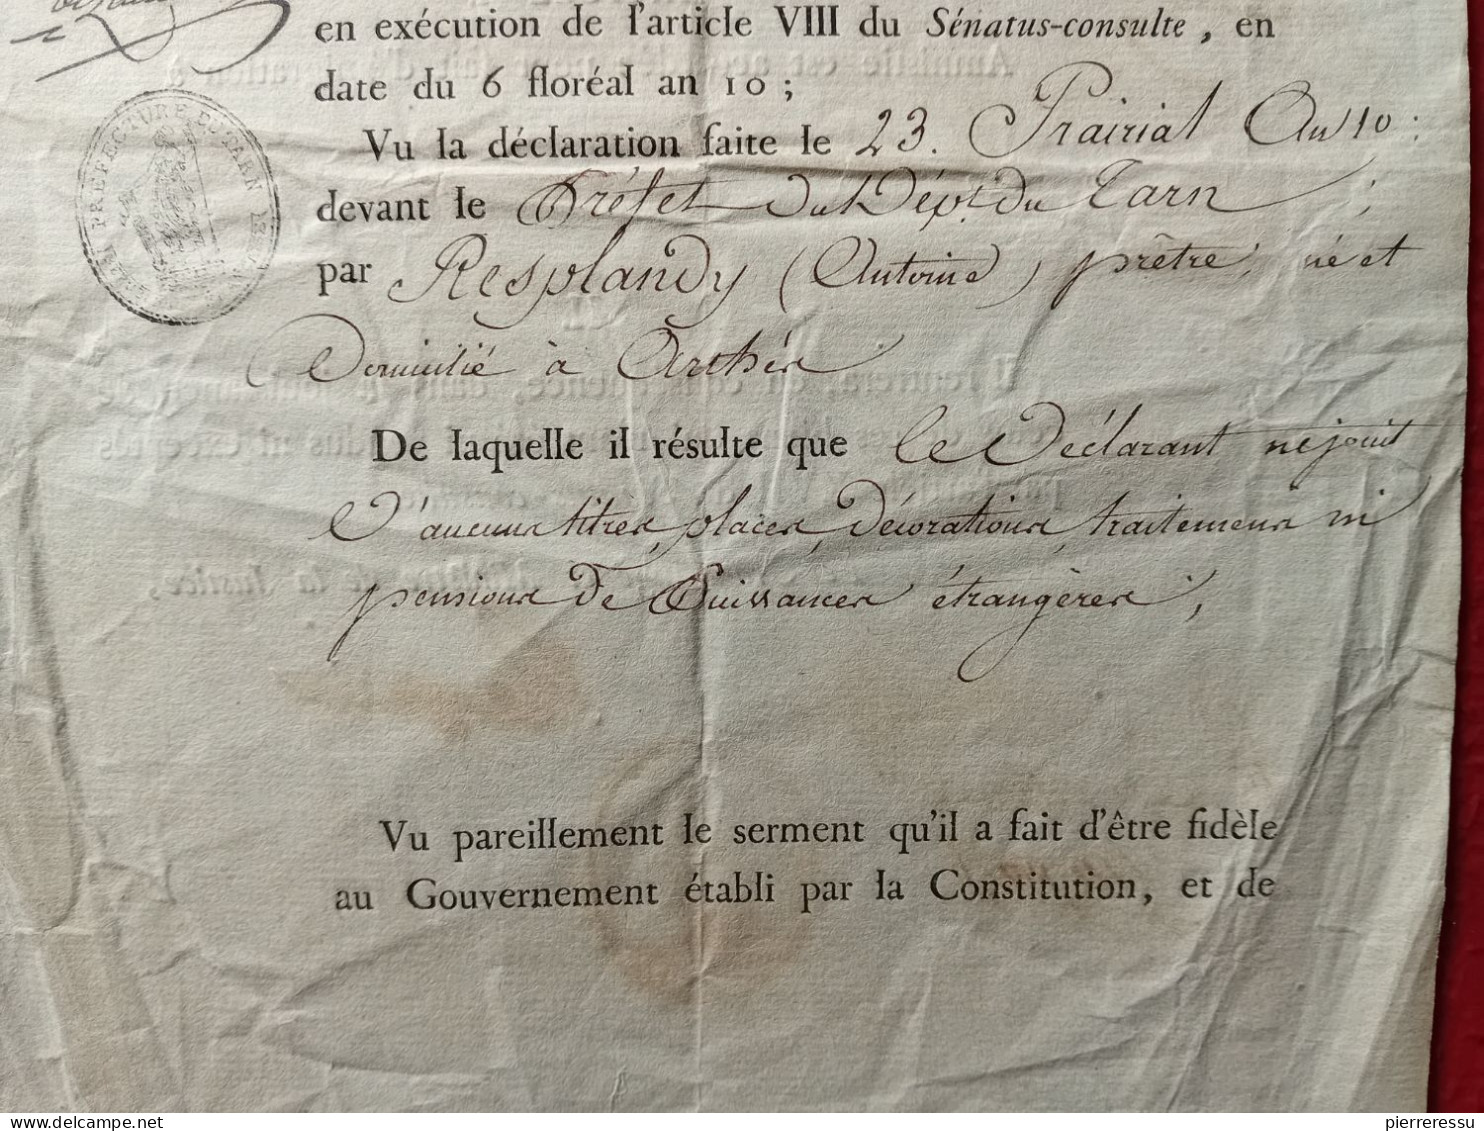 en exécution de l'article VIII du Sénatus-consulte, en
date du 6 floréal an 10 ;
Vu la déclaration faite le 23. Prairial An 10 :
devant le Préfet du Dépt. du Tarn ;
par Resplandy (Antoine) prêtre, né et
Domicilié à
De laquelle il résulte que le Déclarant ne jouit
D'aucuns titres, places, Décorations, traitemens ni
pensions De Puissances étrangères,
Vu pareillement le serment qu'il a fait d'être fidèle
au Gouvernement établi par la Constitution, et de
PRÉFECTURE DU TARN
pierreressu